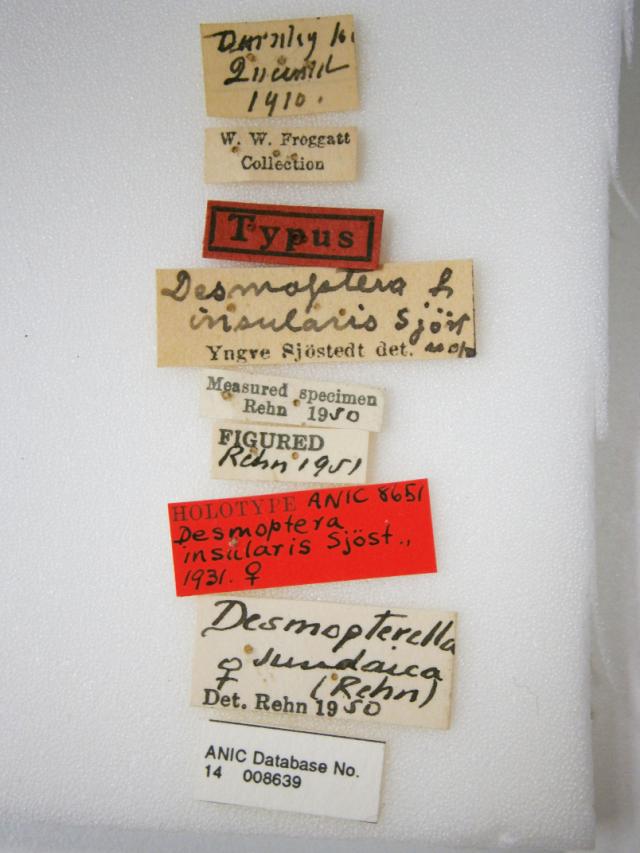 Darnley Is
Queensld
1910.
W. W. Froggatt
Collection
Typus
Desmoptera
insularis Sjöst
Yngve Sjöstedt det.
Measured specimen
Rehn 1950
FIGURED
Rehn 1951
HOLOTYPE ANIC 8651
Desmoptera
insularis Sjöst.,
1931. ♀
Desmopterella
♀ sundaica
(Rehn)
Det. Rehn 1950
ANIC Database No.
14 008639